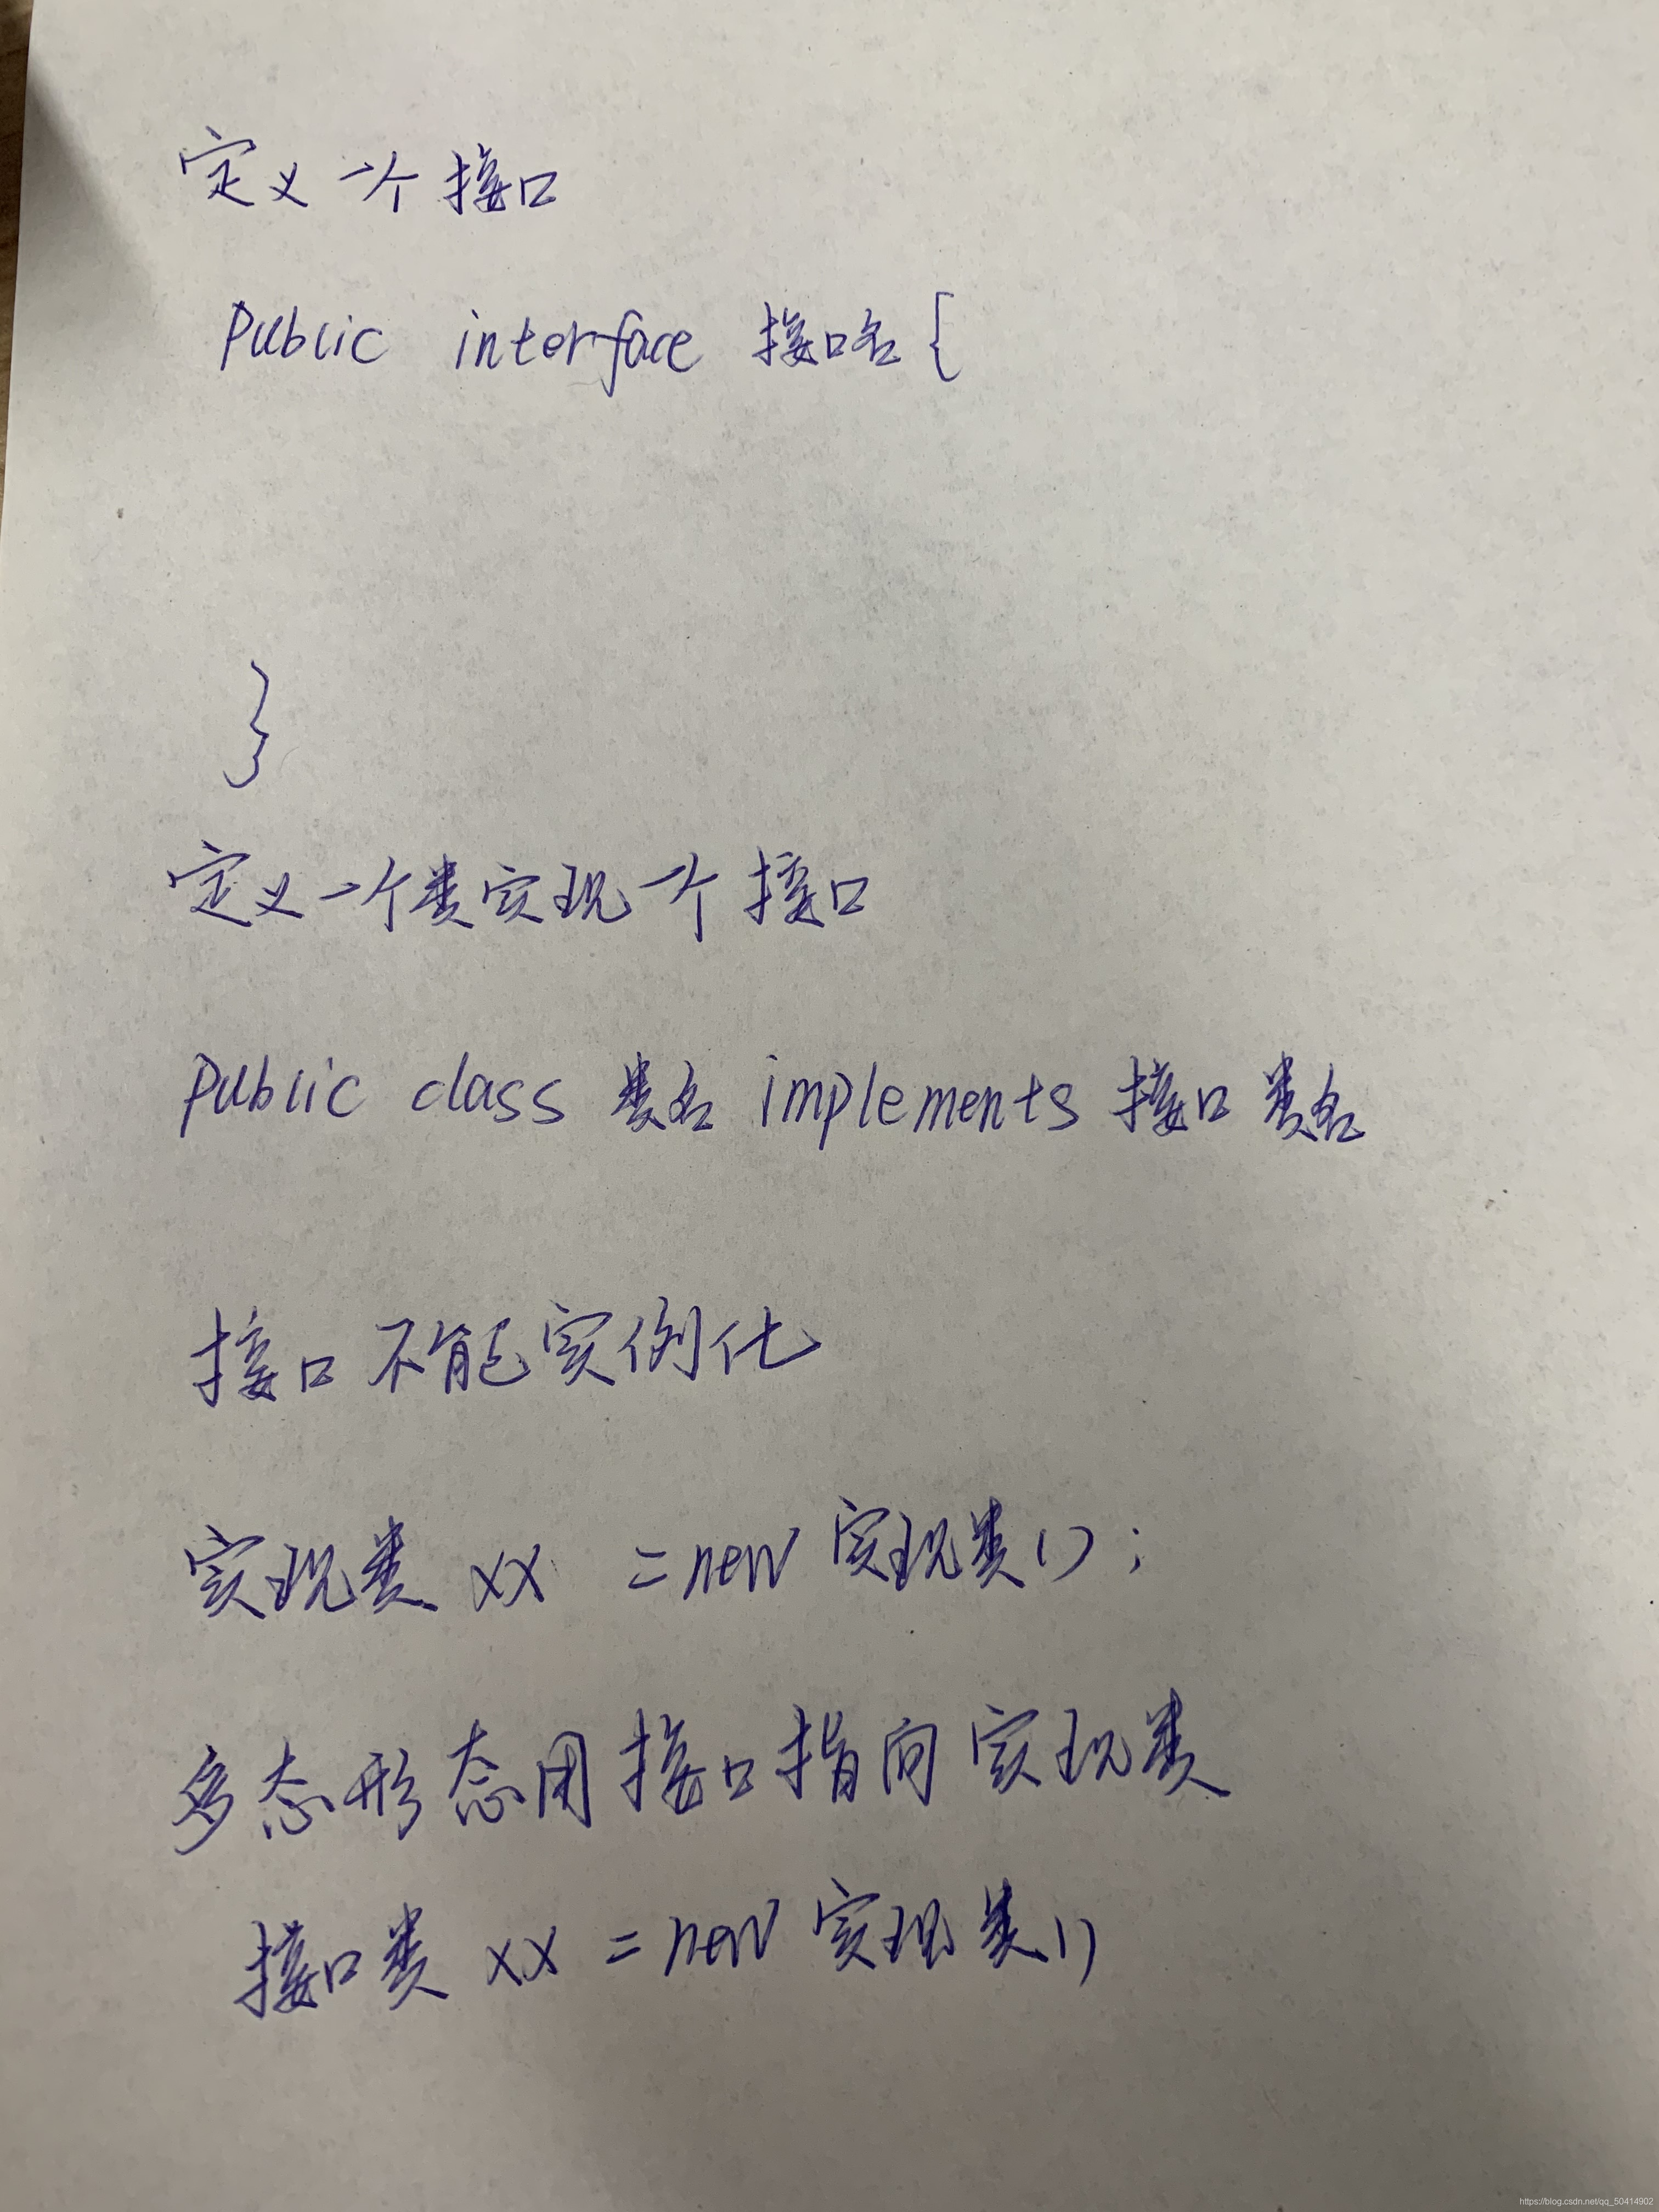 定义一个接口
Public interface 接口名{
}
定义一个类实现一个接口
Public class 类名 implements 接口类名
接口不能实例化
实现类 xx = new 实现类();
多态形态用接口指向实现类
接口类 xx = new 实现类()
https://blog.csdn.net/qq_50414902